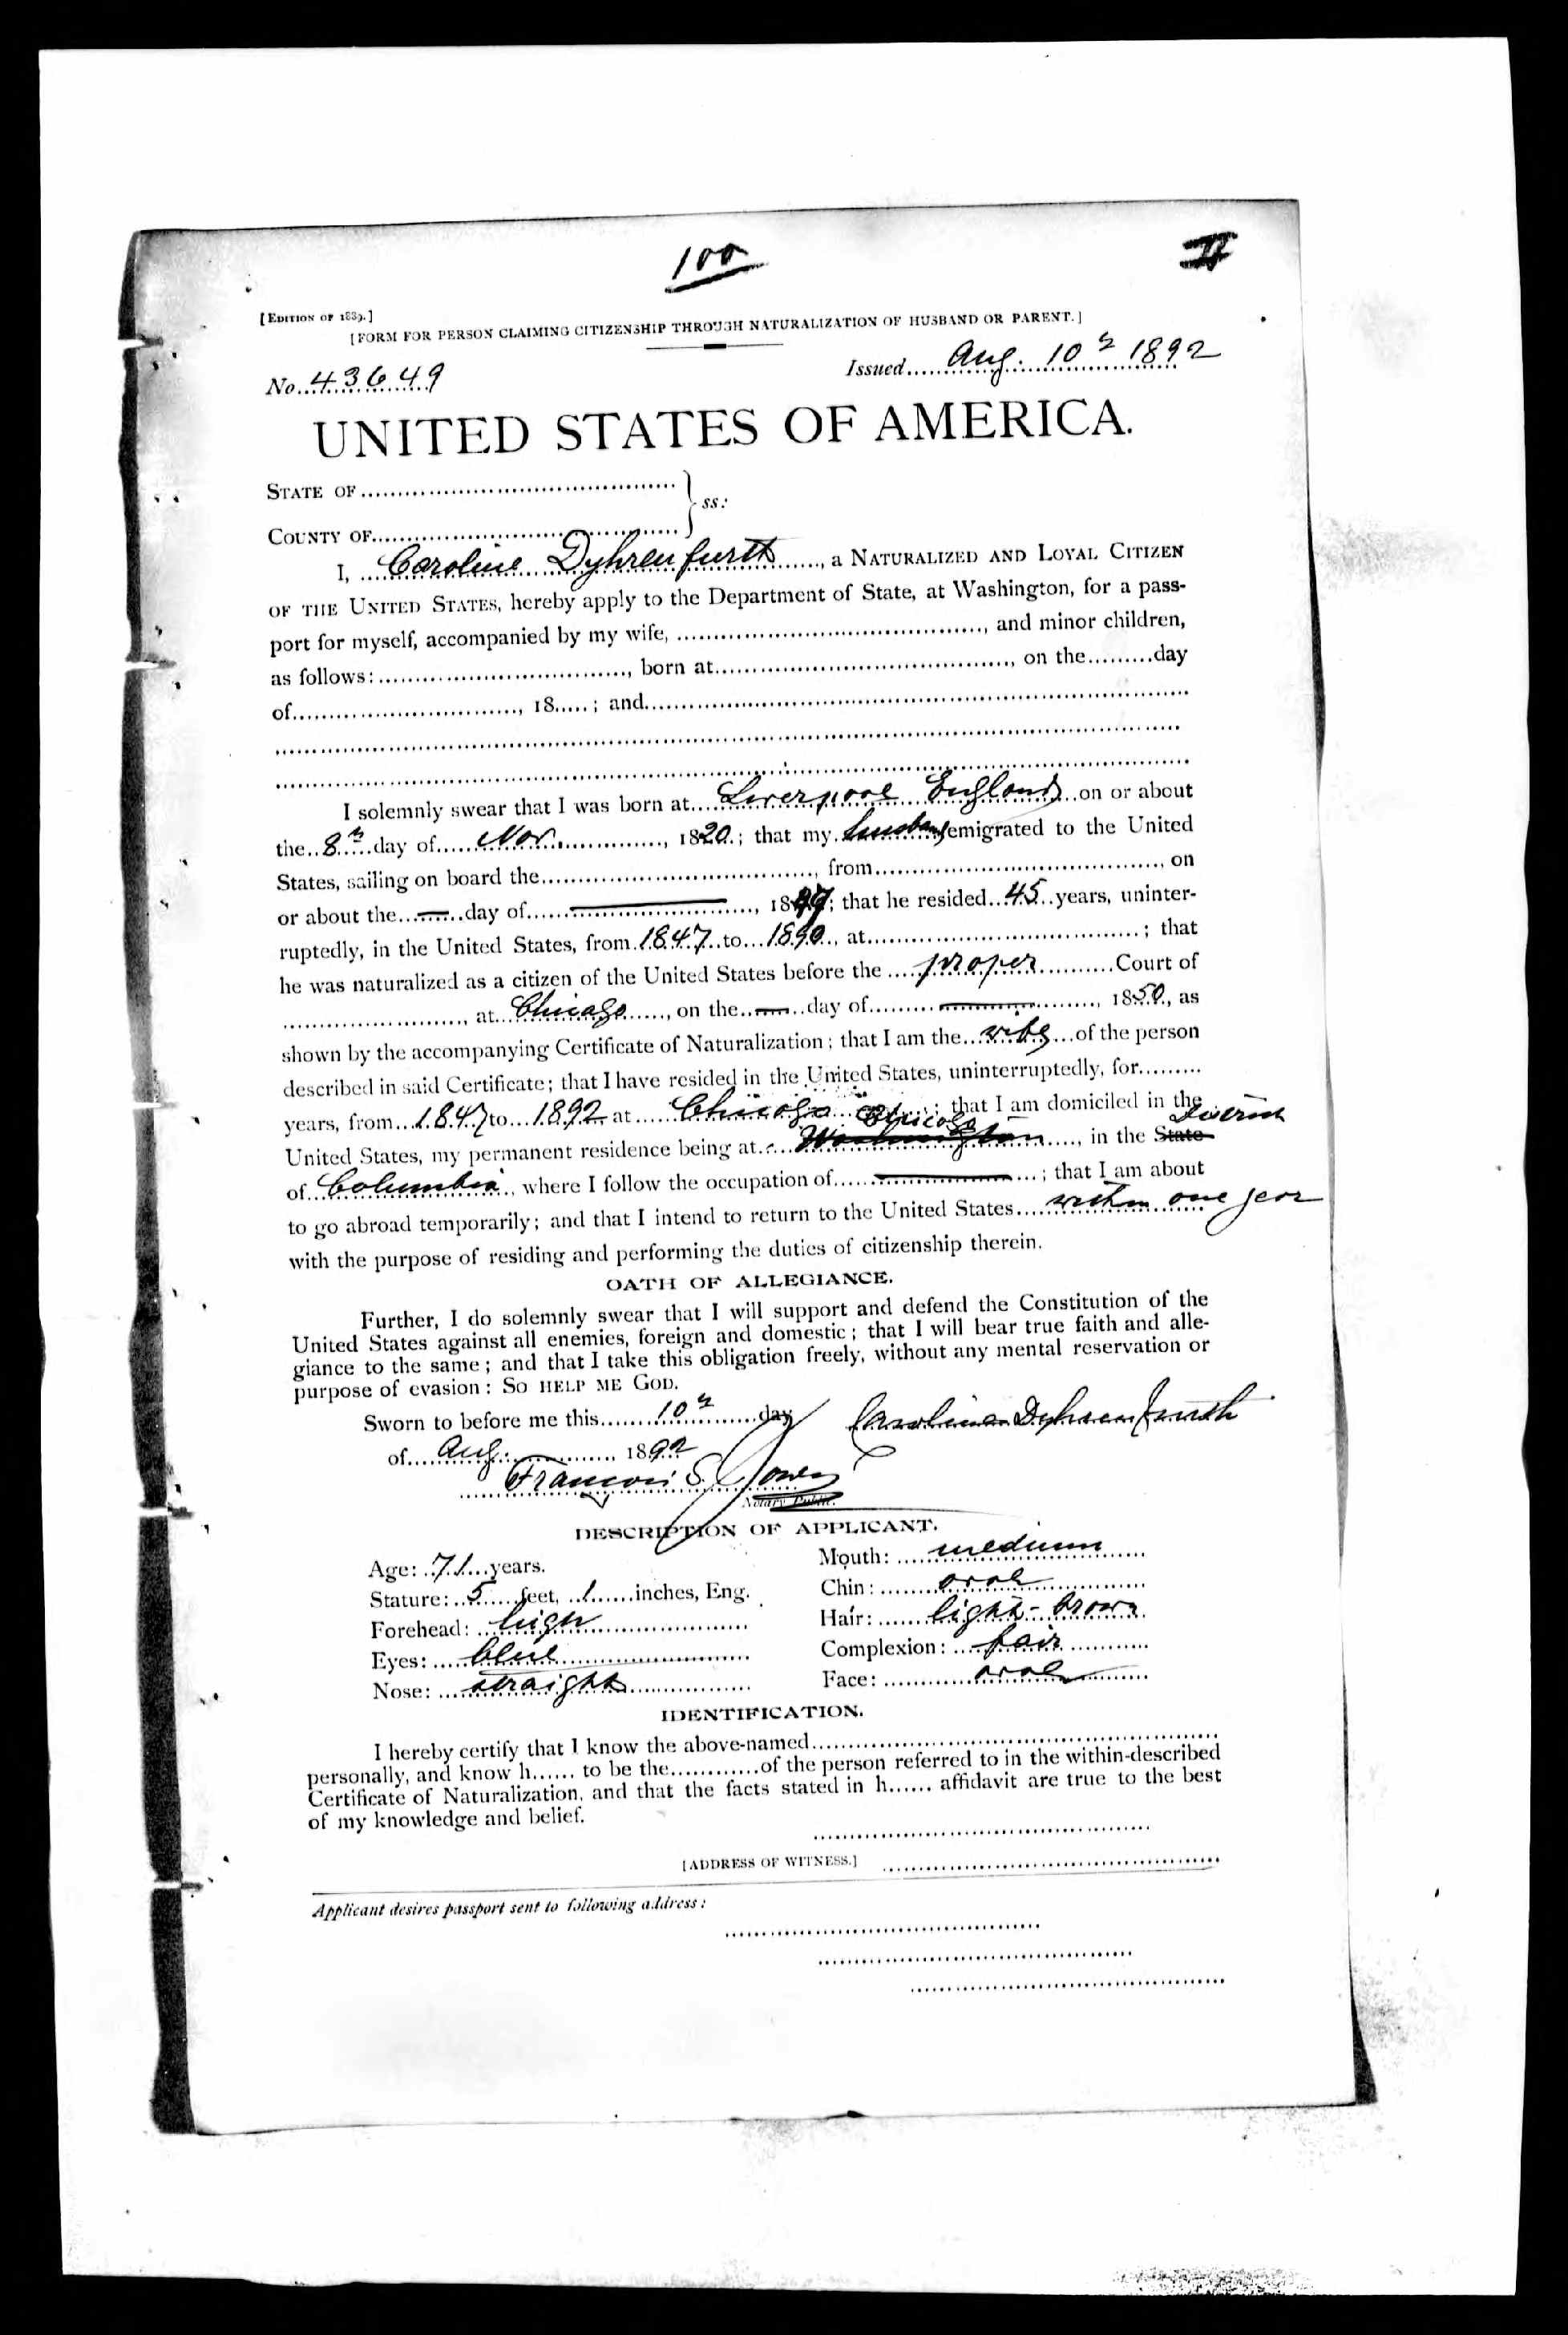 100
II
[EDITION OF 1889.]
[FORM FOR PERSON CLAIMING CITIZENSHIP THROUGH NATURALIZATION OF HUSBAND OR PARENT.]
No. 43649 Issued Aug. 10th 1892
UNITED STATES OF AMERICA.
STATE OF
COUNTY OF } ss:
I, Caroline Dyhrenfurth, a NATURALIZED AND LOYAL CITIZEN
OF THE UNITED STATES, hereby apply to the Department of State, at Washington, for a pass-
port for myself, accompanied by my wife, , and minor children,
as follows: , born at , on the day
of , 18 ; and
I solemnly swear that I was born at Liverpool England on or about
the 8th day of Nov. , 1820; that my husband emigrated to the United
States, sailing on board the , from , on
or about the — day of — , 1847; that he resided 45 years, uninter-
ruptedly, in the United States, from 1847 to 1890, at ; that
he was naturalized as a citizen of the United States before the proper Court of
, at Chicago, on the — day of — , 1850, as
shown by the accompanying Certificate of Naturalization; that I am the wife of the person
described in said Certificate; that I have resided in the United States, uninterruptedly, for
years, from 1847 to 1892 at Chicago ; that I am domiciled in the
Chicago District
United States, my permanent residence being at Washington, in the State
of Columbia, where I follow the occupation of — ; that I am about
to go abroad temporarily; and that I intend to return to the United States within one year
with the purpose of residing and performing the duties of citizenship therein.
OATH OF ALLEGIANCE.
Further, I do solemnly swear that I will support and defend the Constitution of the
United States against all enemies, foreign and domestic; that I will bear true faith and alle-
giance to the same; and that I take this obligation freely, without any mental reservation or
purpose of evasion: SO HELP ME GOD.
Sworn to before me this 10th day Caroline Dyhrenfurth
of Aug. 1892
Francois S. Jones
Notary Public.
DESCRIPTION OF APPLICANT.
Age: 71 years. Mouth: medium
Stature: 5 feet, 1 inches, Eng. Chin: oval
Forehead: high Hair: light-brown
Eyes: blue Complexion: fair
Nose: straight Face: oval
IDENTIFICATION.
I hereby certify that I know the above-named
personally, and know h to be the of the person referred to in the within-described
Certificate of Naturalization, and that the facts stated in h affidavit are true to the best
of my knowledge and belief.
[ADDRESS OF WITNESS.]
Applicant desires passport sent to following address: